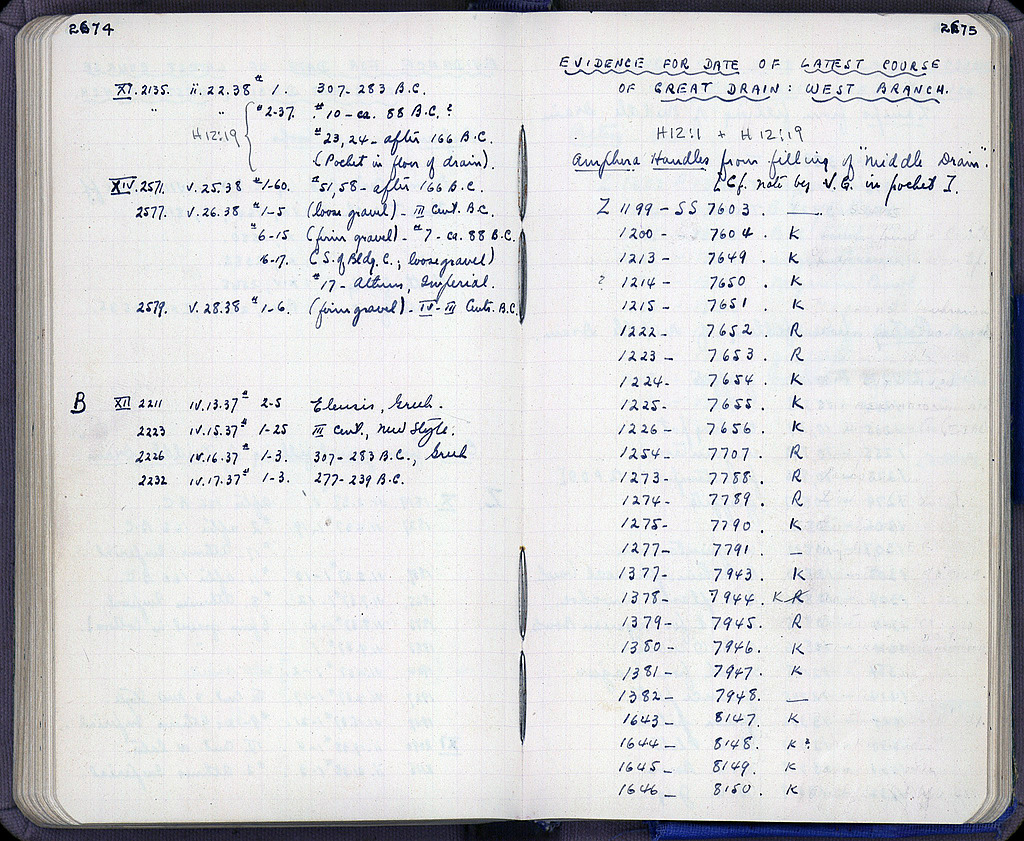 2674
XI. 2135. ii. 22.38 # 1. 307-283 B.C.
" #2-37. #10 - ca. 88 B.C.?
H12:19 #23,24 - after 166 B.C.
(Pocket in floor of drain).
XIV. 2571. V. 25.38 #1-60. #51,58 - after 166 B.C.
2577. V. 26.38 #1-5 (loose gravel) - III Cent. B.C.
#6-15 (firm gravel) - #7 - ca. 88 B.C.
6-17. (S. of Bldg. C.; loose gravel)
#17 - Athens, Imperial.
2579. V. 28.38 #1-6. (firm gravel) - IV-III Cents. B.C.
B XII 2211 IV.13.37 # 2-5 Eleusis, Greek.
2223 IV.15.37 # 1-25 III Cent., New Style.
2226 IV.16.37 # 1-3. 307-283 B.C., Greek
2232 IV.17.37 # 1-3. 277-239 B.C.
2675
EVIDENCE FOR DATE OF LATEST COURSE
OF GREAT DRAIN: WEST BRANCH.
H12:1 + H12:19
Amphora Handles from filling of "Middle Drain".
[Cf. note by V.G. in pocket I.
Z 1199 - SS 7603. —
1200 - 7604. K
1213 - 7649. K
? 1214 - 7650. K
1215 - 7651. K
1222 - 7652. R
1223 - 7653. R
1224 - 7654. K
1225 - 7655. K
1226 - 7656. K
1254 - 7707. R
1273 - 7788. R
1274 - 7789. R
1275 - 7790. K
1277 - 7791. —
1377 - 7943. K
1378 - 7944. K R
1379 - 7945. R
1380 - 7946. K
1381 - 7947. K
1382 - 7948. —
1643 - 8147. K
1644 - 8148. K?
1645 - 8149. K
1646 - 8150. K